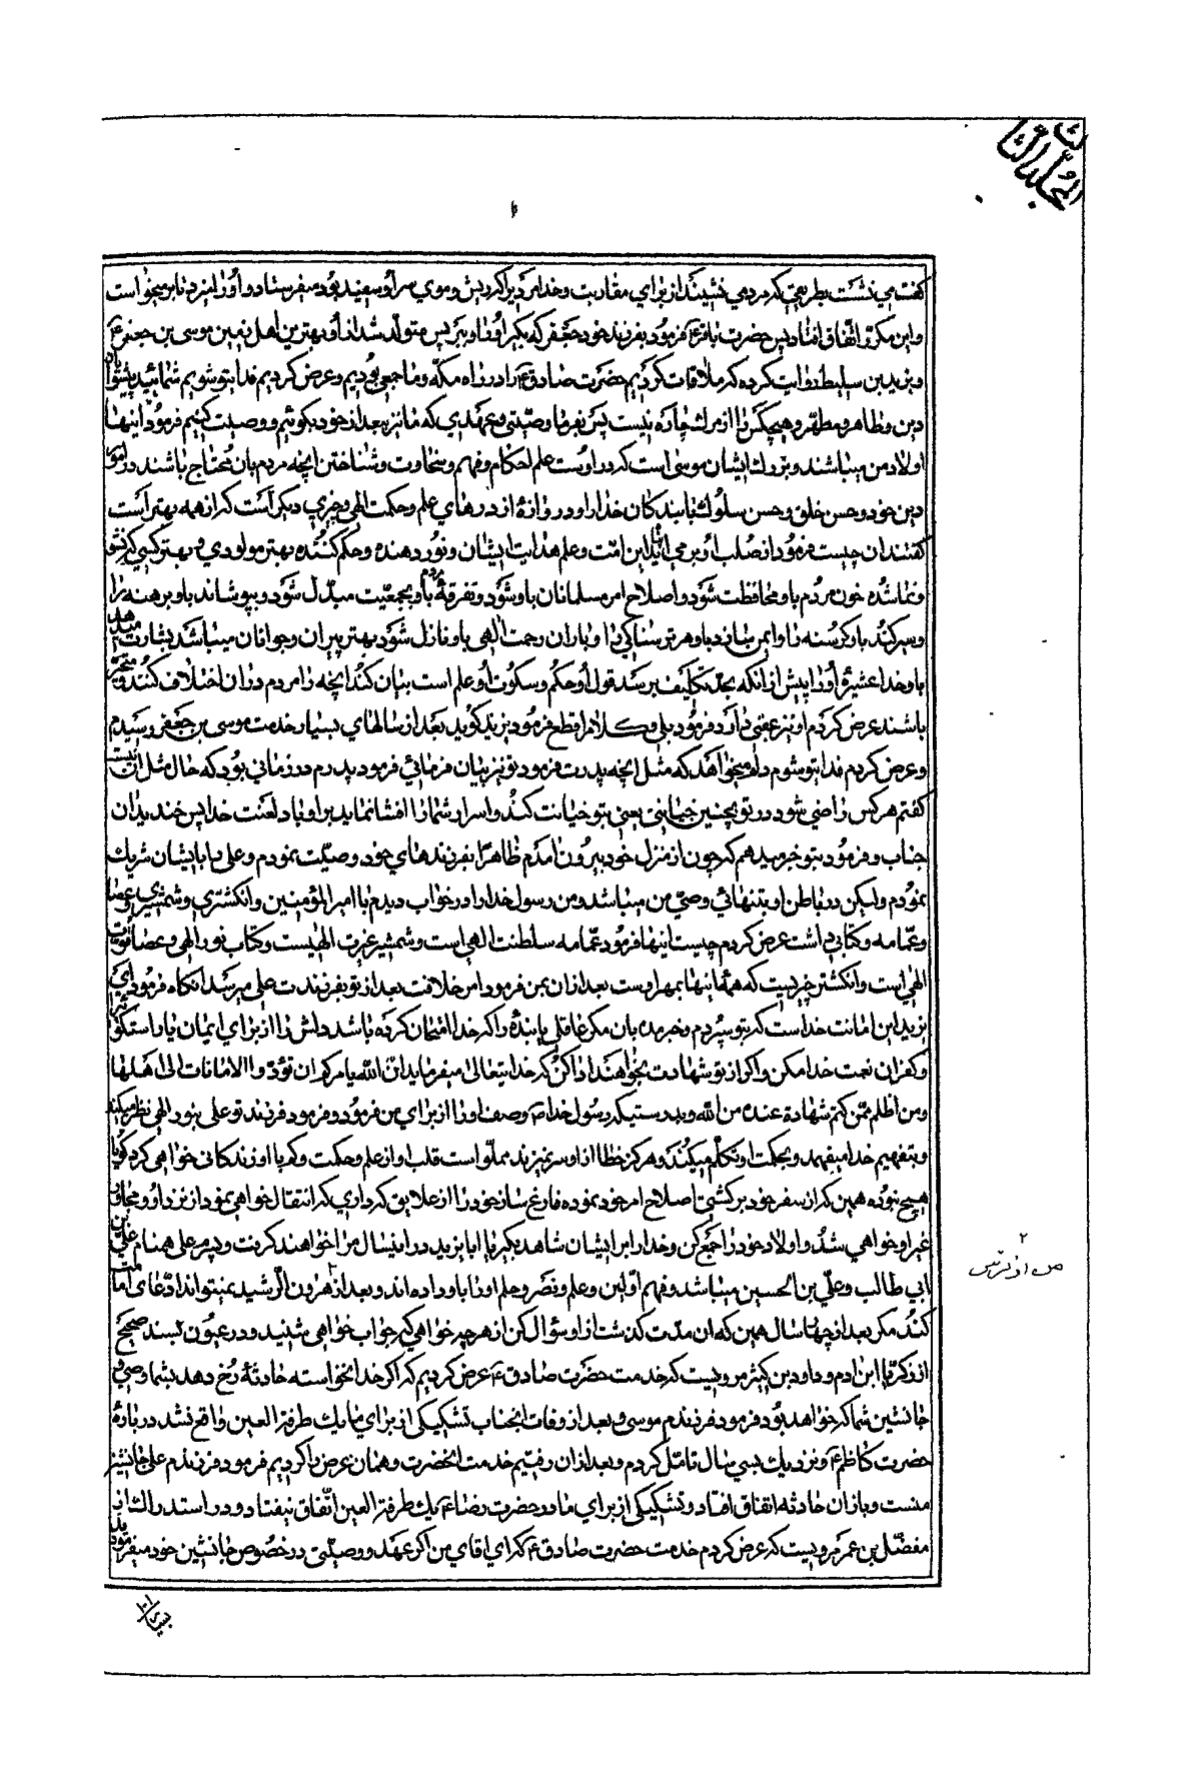 المجلد الثالث
گفت مي نشست بطريقي که مرد مي نشيند از براي مقاربت و خدا مرديرا که ريش و موي سر او سفيد بود ميفرستاد و او را نميزد تا برميخواست
و اين مکرر اتفاق افتاد پس حضرت باقرع فرمود بفرزند خود جعفر که بگير او را و ببر پس متولد شد از او بهترين اهل زمين موسى بن جعفرع
و يزيد بن سليط روايت کرده که ملاقات کرديم حضرت صادق ع را در راه مکه و ما جمعي بوديم و عرض کرديم فدايتو شويم شمائيد پيشوايان
دين و طاهر و مطهر و هيچکس را از مرك چاره نيست پس بفرما وصيتي و عهدي که ما نيز ببعد از خود بگوئيم و وصيت کنيم فرمود اينها
اولاد من ميباشند و بزرك ايشان موسى است که در اوست علم احکام و فهم و سخاوت و شناختن انچه مردم بان محتاج باشند در امور
دين خود و حسن خلق و حسن سلوك با بندکان خدا و او در وازۀ از درهاي علم و حکمت الهي و چيزي ديکر است که از همه بهتر است
گفتند ان چيست فرمود از صلب او برمي ايد اين امت و علم هدايت ايشان و نور دهنده و حکم کننده بهتر مولودي و بهتر کسي که نشو
و نما شده خون مردم باو محافظت شود و اصلاح امر مسلمانان باو شود و تفرقۀ مردم باو بجمعيت مبدل شود و بپوشاند باو برهنه را
و سير کند باو کرسنه را و ايمن سازد باو هر ترسناکي را و باران رحمت الهي باو نازل شود بهتر پيران و جوانان ميباشد بشارت ميدهد
باو خدا عشيرۀ او را پيش از انکه بحد تکليف برسد قول او حکم و سکوت او علم است بيان کند انچه را مردم در ان اختلاف کنند و متحير
باشند عرض کردم او نيز عقبي دارد فرمود بلي و کلام را قطع فرمود يزيد کويد بعد از سالهاي بسيار خدمت موسى بن جعفر رسيدم
و عرض کردم فدايتو شوم دلم ميخواهد که مثل انچه پدرت فرمود تو نيز بيان فرمائي فرمود پدرم در زماني بود که حال مثل ان نيست
گفتم هر کس راضي شود در تو بچنين خيانتي يعني بتو خيانت کند و اسرار شما را افشا نمايد بر او باد لعنت خدا پس خنديد ان
جناب و فرمود بتو خبر ميدهم که چون از منزل خود بيرون امدم ظاهراً بفرزندهاي خود وصيت نمودم و على را با ايشان شريك
نمودم و ليکن در باطن او بتنهائي وصي من ميباشد و من رسول خدا را در خواب ديدم با امير المؤمنين و انگشتري و شمشيري و عصا
و عمامه و کتابي داشت عرض کردم چيست اينها فرمود عمامه سلطنت الهي است و شمشير عزت الهيست و کتاب نور الهي و عصا قوت
الهي است و انگشتر چيزيست که همۀ اينها بمهر اوست بعد از ان بمن فرمود امر خلافت بعد از تو بفرزندت على ميرسد انکاه فرمود اي
يزيد اين امانت خداست که بتو سپردم و خبر مده بان مکر عاقلي يا بندۀ را که خدا امتحان کرده باشد دلش را از براي ايمان يا راستکو را
و کفران نعمت خدا مکن و اکر از تو شهادت بخواهند ادا کن که خدايتعالى ميفرمايد ان الله يامرکم ان تؤدوا الامانات الى اهلها
و من اظلم ممن کتم شهادة عنده من الله و بدرستيکه رسول خدا وصف او را از براي من فرمود و فرمود فرزند تو على بنور الهي نظر ميکند
و بتفهيم خدا ميفهمد و بحکمت او تکلم ميکند و هرکز خطا از او سر نميزند مملو است قلب او از علم و حکمت و کم با او زندکاني خواهي کرد گويا
هيچ نبوده همين که از سفر خود بر کشتي اصلاح امر خود نموده فارغ ساز خود را از علايق که داري که انتقال خواهي نمود از نزد او و مجاور
غير او خواهي شد و اولاد خود را جمع کن و خدا را بر ايشان شاهد بگير يا ابا يزيد در اين سال مرا خواهند کرفت و پسرم على همنام على بن
ابي طالب و علي بن الحسين ميباشد و فهم اولين و علم و نصر و حلم او را باو داده اند و بعد از هرون الرشيد نميتواند ادعاي امامت
کند مکر بعد از چهار سال همين که ان مدت کذشت از او سؤال کن از هر چه خواهي که جواب خواهي شنيد و در عيون بسند صحيح
از زکريا ابن ادم و داود بن کثير مرويست که خدمت حضرت صادق ع عرض کرديم که اکر خدا نخواسته حادثۀ رخ دهد بشما وصي و
جانشين شما که خواهد بود فرمود فرزندم موسى و بعد از وفات انجناب تشکيکي از براي ما يك طرفة العين واقع نشد در بارۀ
حضرت کاظم ع و نزديك بسي سال تامل کردم و بعد از ان رفتيم خدمت انحضرت و همان عرض را کرديم فرمود فرزندم على جانشين
منست و باز ان حادثه اتفاق افتاد و تشکيکي از براي ما در حضرت رضا ع يك طرفة العين اتفاق نيفتاد و در استدراك از
مفضل بن عمر مرويست که عرض کردم خدمت حضرت صادق ع که اي اقاي من اکر عهد و وصيتي در خصوص جانشين خود ميفرموديد
۲